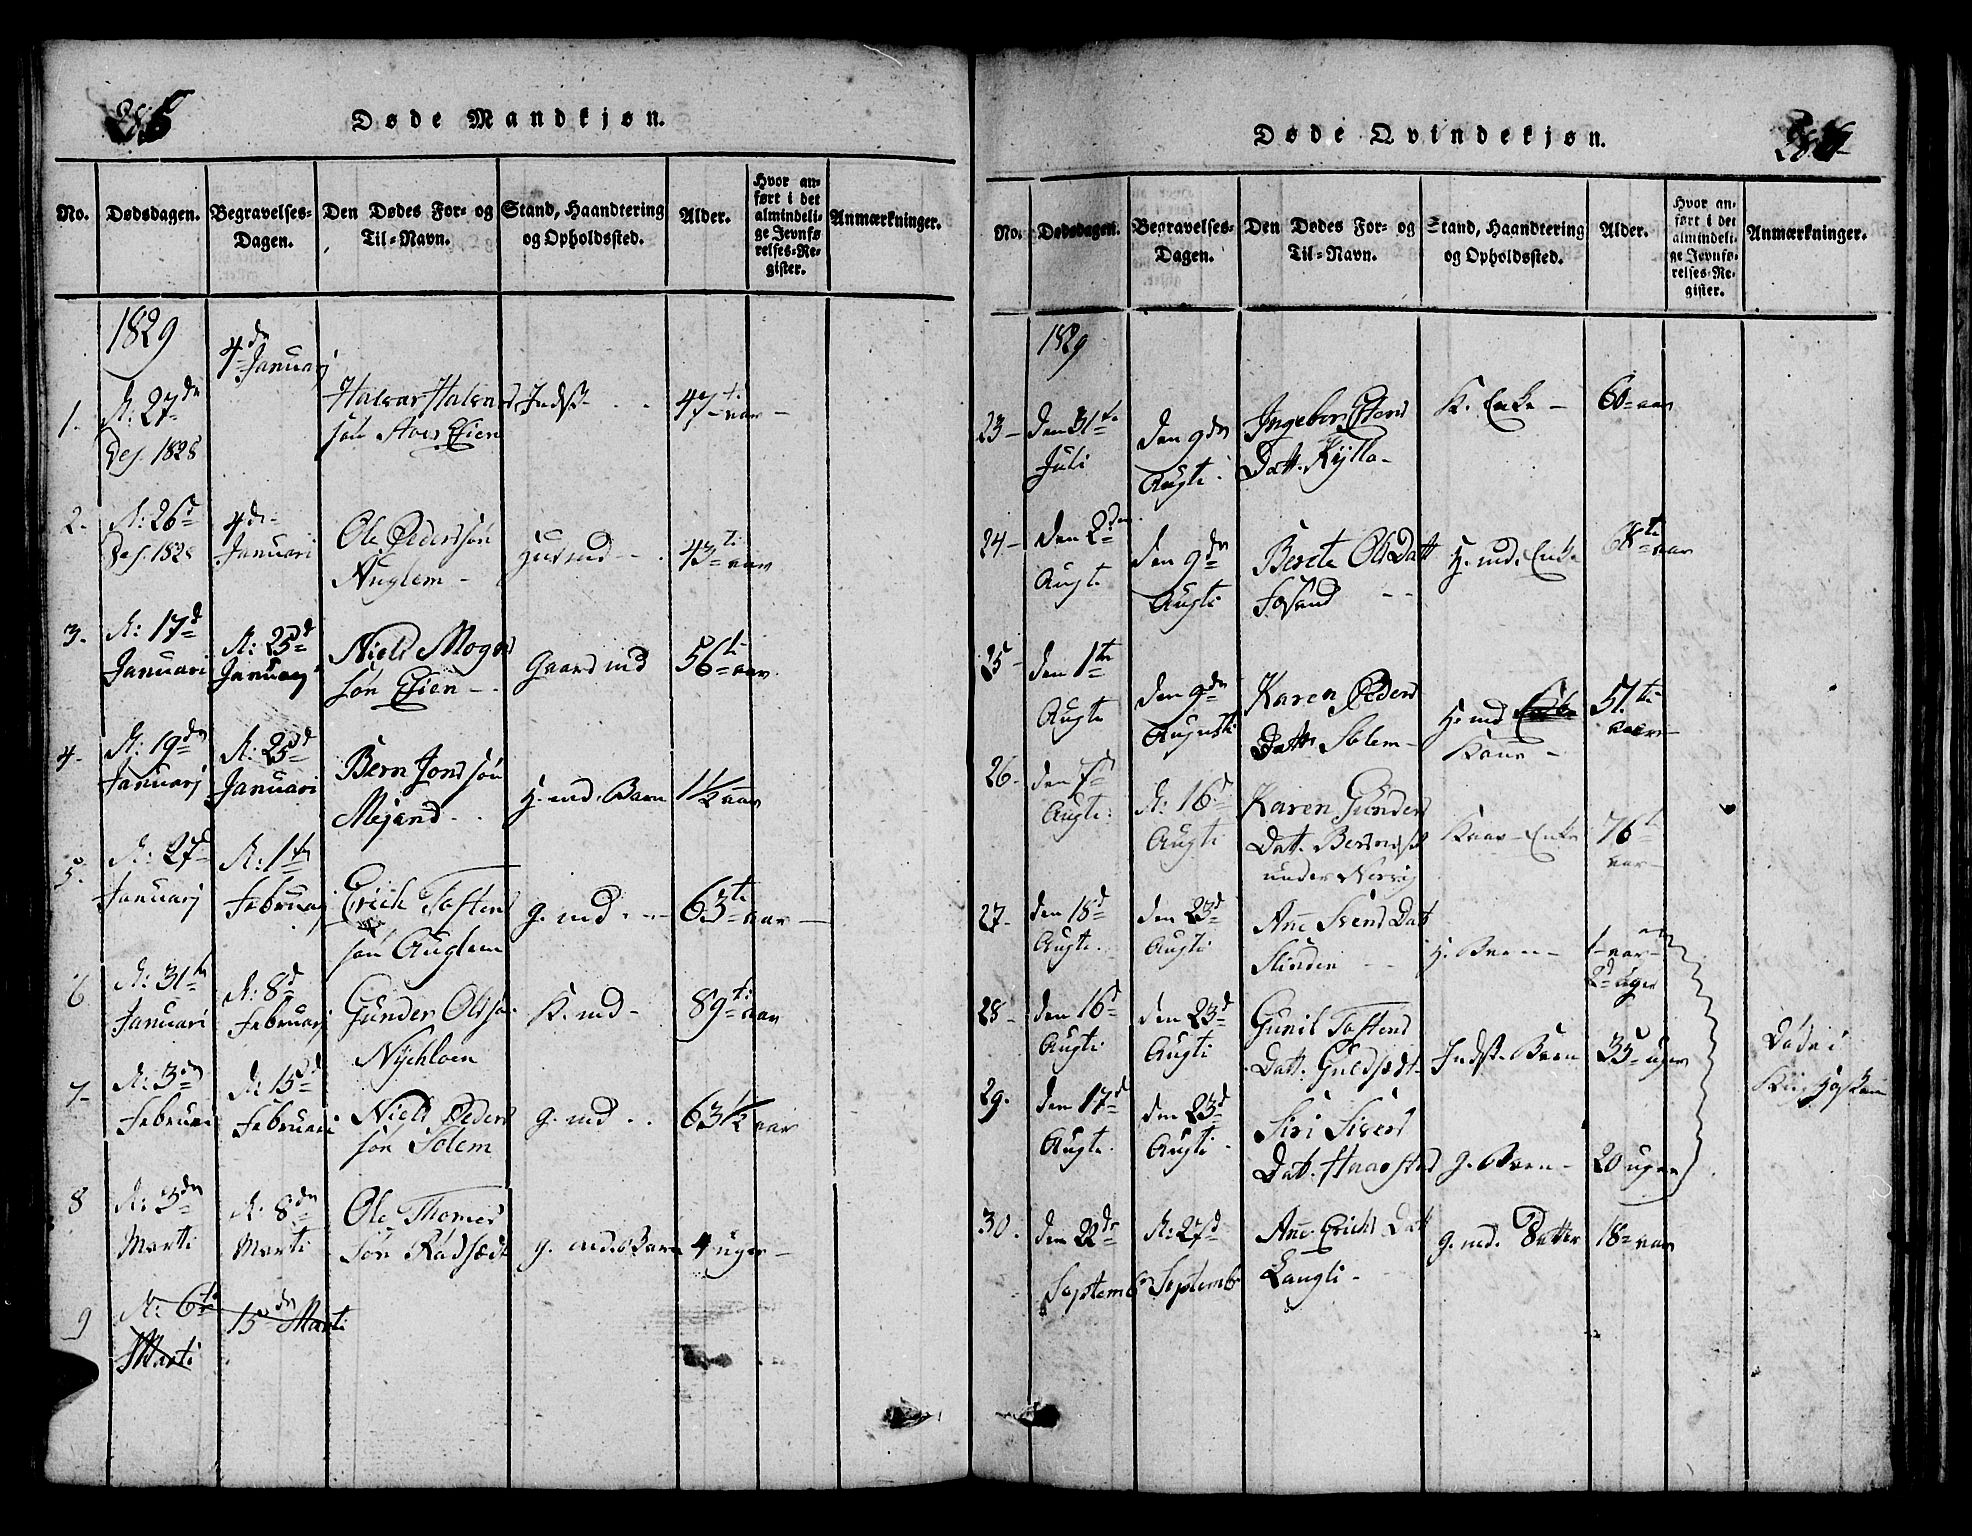 Døde Mandkjøn.
No.
Dødsdagen.
Begravelses-
Dagen.
Den Dødes For- og
Til-Navn.
Stand, Haandtering
og Opholdssted.
Alder.
Hvor an-
ført i det
almindeli-
ge Jevnfø
relses-Re-
gister.
Anmærkninger.
1829
1.
d: 27de
Des. 1828
4de
Januarj
Halvar Halvors
søn
Indst
47 ti aar
2.
d: 26d
Des. 1828
4de
Januari
Ole Pederssøn
Auglem
Husmd
43 ti aar
3.
d: 17d
Januari
d: 25d
Januarj
Niels Mogens
søn Eien
Gaardmd
56 ti aar
4.
d: 19de
Januarj
d: 25d
Januari
Bern Jonssøn
Mejand
H. md. Barn
1½ aar
5.
d: 27d
Januarj
d: 1te
Februarj
Erich Tostens
søn Auglem
g. md.
63 ti aar
6
d: 31te
Januari
d: 8d
Februarj
Gunder Olssøn
Nychloen
K. md
89 ti aar
7
d: 3de
Februari
d: 15d
Februari
Niels Peders
søn Solem
g. md
63½ aar
8
d: 3de
Marti
d. 8de
Marti
Ole Thomes
søn Rødsædt
g. md. Barn
4 uger
9
d: 6te
Marti
15de Marti
Døde Qvindekjøn.
286
No.
Dødsdagen.
Begravelses-
Dagen.
Den Dødes For- og
Til-Navn.
Stand, Haandtering
og Opholdssted.
Alder.
Hvor an-
ført i det
almindeli-
ge Jevnfø-
relses-Re-
gister.
Anmærkninger.
1829
23
den 31te
Juli
den 9de
Augti
Ingebor Estens
Datt. Kylla
K. Enke
60 aar
24
den 2den
Augti
den 9de
Augti
Berete Ols Datt
Fosand
H. md. Enke
68 ti aar
25
den 1te
Augti
den 9de
Augusti
Karen Peders
Datt. Solem
H. md Enke
Kone
51. ti
aar
26.
den 7d
Augti
d: 16d
Augti
Karen Gunders
Dat.
under
Enke
76 ti
aar
27
den 18d
Augti.
den 23d
Augti
Ane Svens Dat
Slinden
H. Barn
1 aar
2d uger
28
den 16d
Augti
den 23d
Augti
Gunil Tostens
Datt. Guldsædt
Indst. Barn
35 uger
Døde i
29.
den 17d
Augti
den 23d
Augti
Siri Sivers
Dat. Haarstad
g. Barn
20 uger
30.
den 22de
Septembr
d: 27d
Septembr
Ane Erichs Dat
Langli
g. md. Datter
18 aar